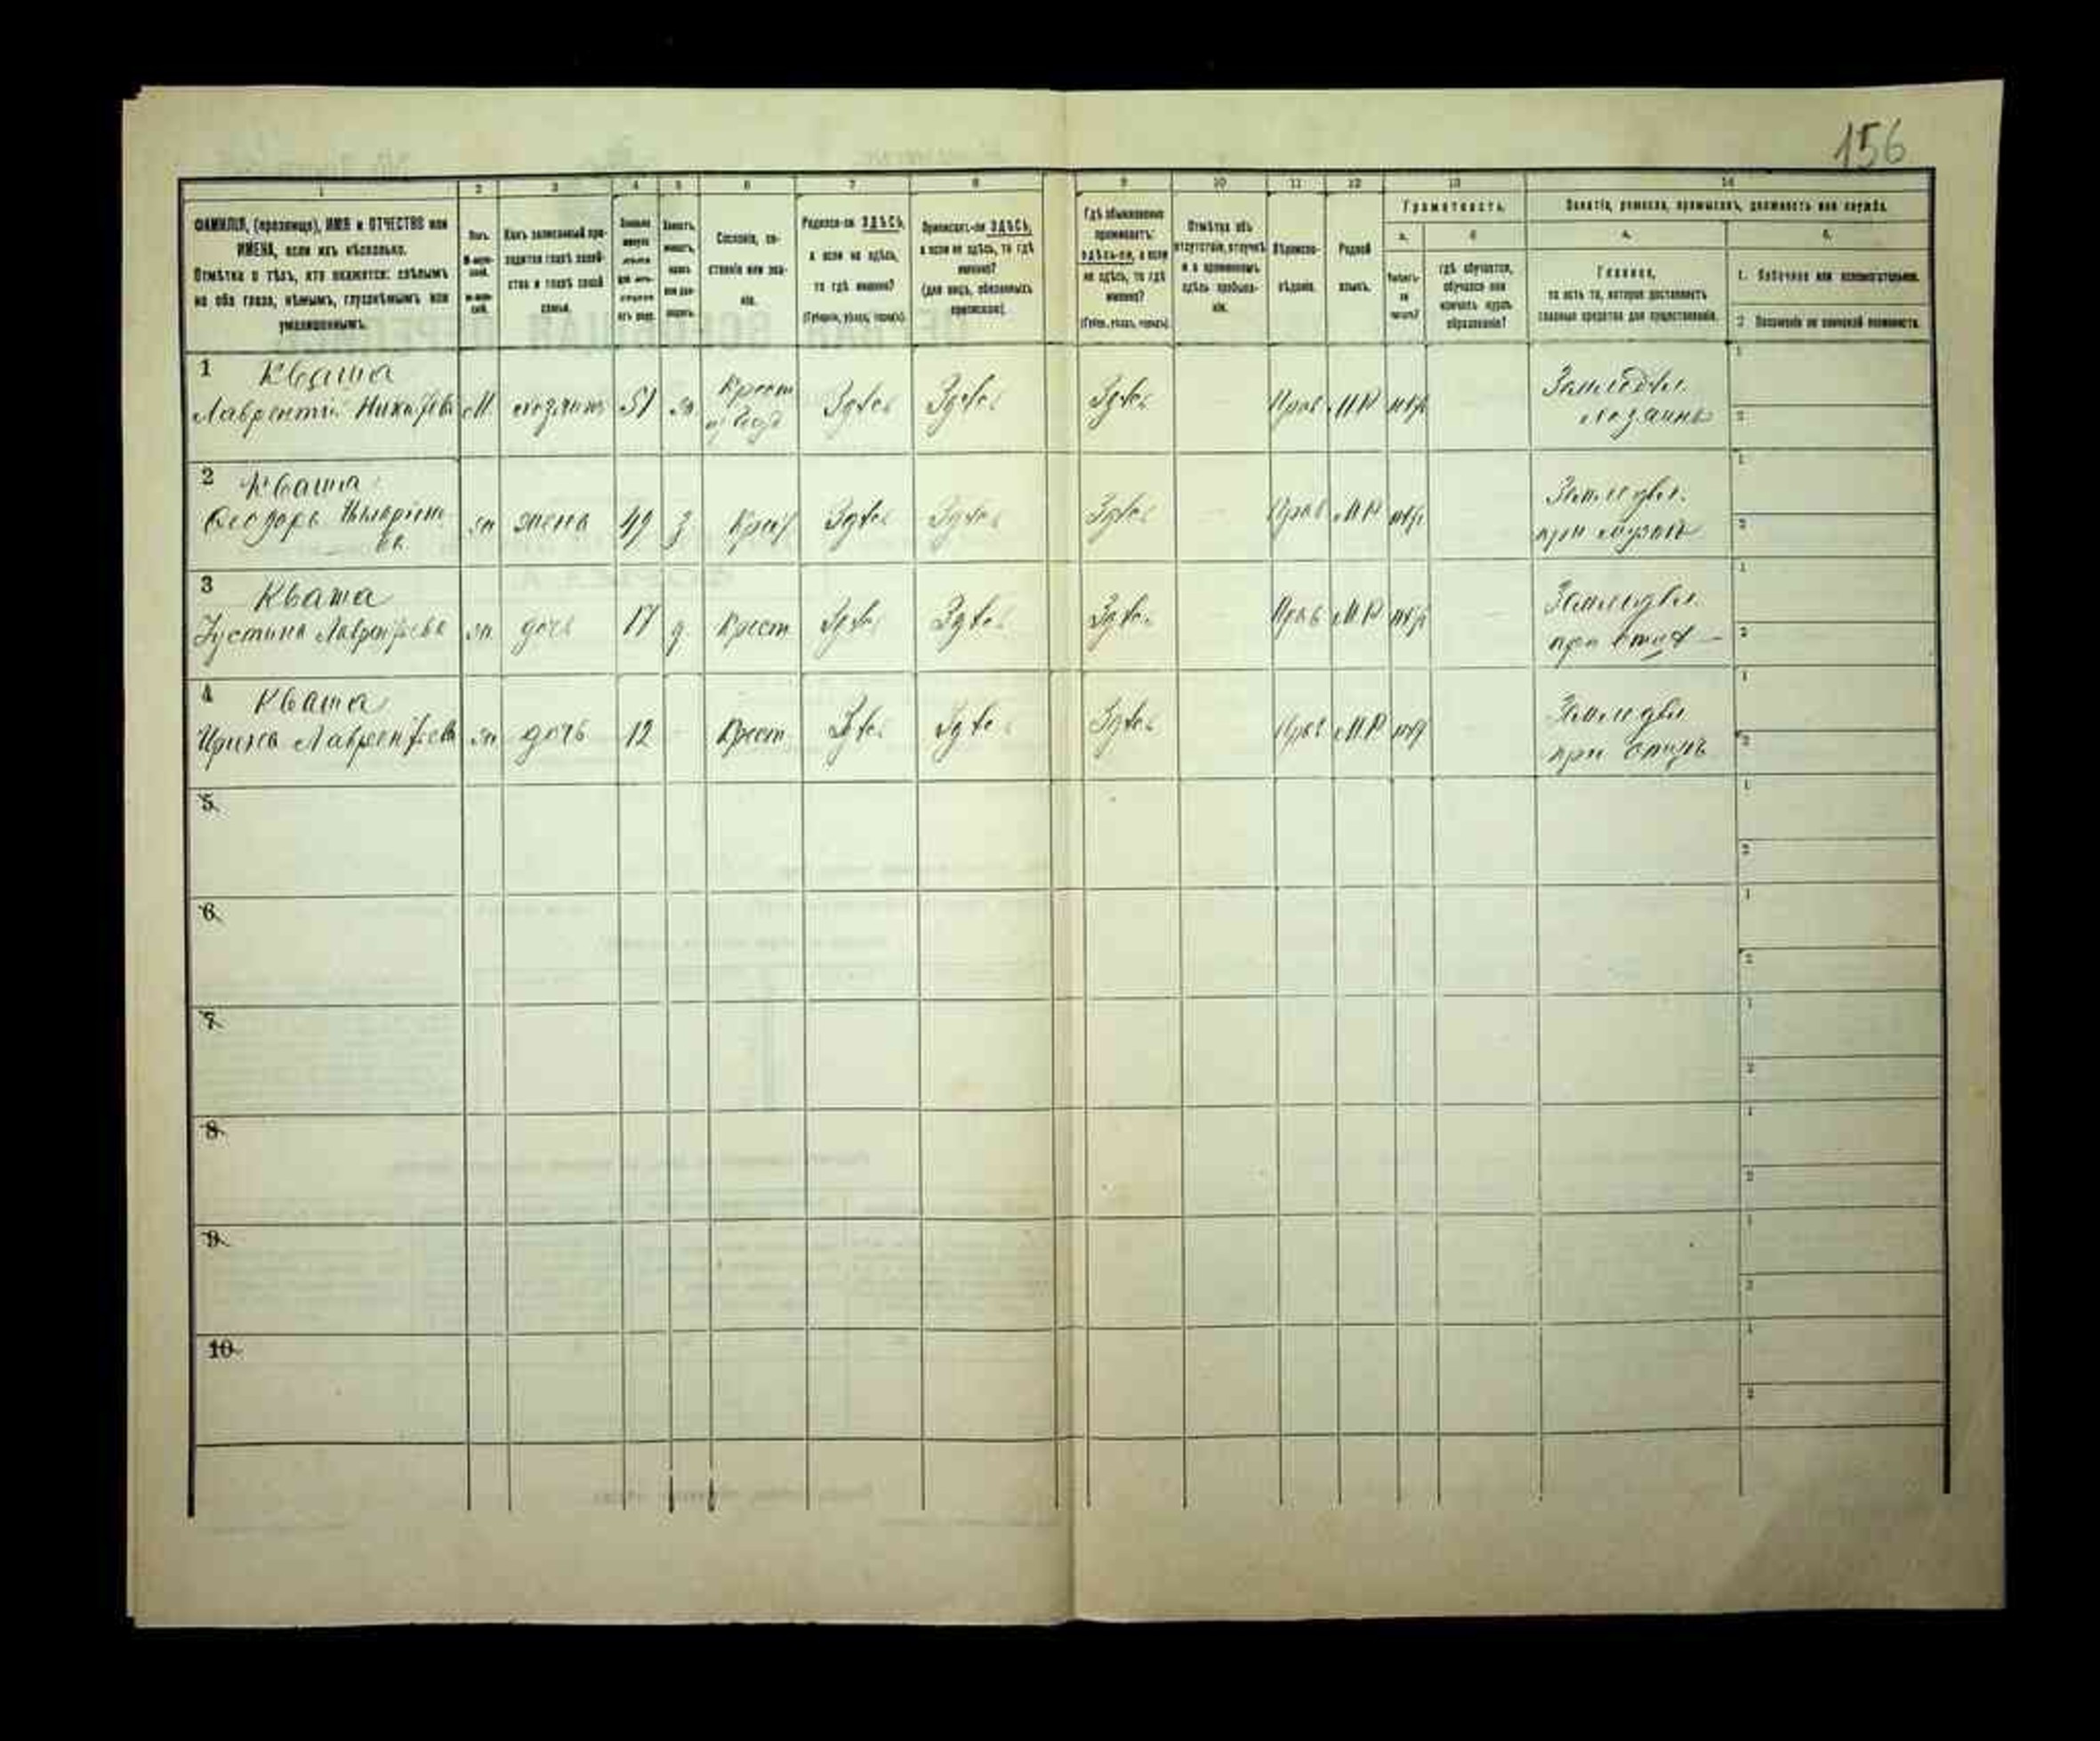 156
1 2 3 4 5 6 7 8 9 10 11 12 13 14
ФАМИЛІЯ, (прозвище), ИМЯ и ОТЧЕСТВО или
ИМЕНА, если ихъ нѣсколько.
Отмѣтка о тѣхъ, кто окажется: слѣпымъ
на оба глаза, нѣмымъ, глухонѣмымъ или
умалишеннымъ.
Полъ.
Какъ записанный при-
ходится главѣ хозяй-
ства и главѣ своей
семьи.
Сословіе, со-
стояніе или зва-
ніе.
Родился-ли ЗДѢСЬ,
а если не здѣсь,
то гдѣ именно?
(Губернія, уѣздъ, городъ).
Приписанъ-ли ЗДѢСЬ,
а если не здѣсь, то гдѣ
именно?
(для лицъ, обязанныхъ
припиской).
Гдѣ обыкновенно
проживаетъ:
здѣсь-ли, а если
не здѣсь, то гдѣ
именно?
(Губер., уѣздъ, городъ).
Отмѣтка объ
отсутствіи, отлучкѣ
и о временномъ
здѣсь пребыва-
ніи.
Вѣроиспо-
вѣданіе.
Родной
языкъ.
Грамотность.
а.
Умѣетъ-
ли
читать?
б
гдѣ обучается,
обучался или
кончилъ курсъ
образованія?
Занятіе, ремесло, промыселъ, должность или служба.
а.
Главное,
то есть то, которое доставляетъ
главныя средства для существованія.
б.
1. Побочное или вспомогательное.
2 Положеніе по воинской повинности.
1 Кваша
Лаврентій М хозяинъ 51 Крест Здѣсь Здѣсь Здѣсь Прав МР нѣт Земледѣл.
хозяинъ
1
2
2 Кваша
жена 49 з Крест Здѣсь Здѣсь Здѣсь Прав МР нѣт Земледѣл.
при мужѣ
1
2
3 Кваша
дочь 17 д Крест Здѣсь Здѣсь Здѣсь Прав МР нѣт Земледѣл.
при отцѣ
1
2
4 Кваша
Лаврентьева дочь 12 Крест Здѣсь Здѣсь Здѣсь Прав МР нѣт Земледѣл
при отцѣ
1
2
5.
1
2
6.
1
2
7.
1
2
8.
1
2
9.
1
2
10
1
2